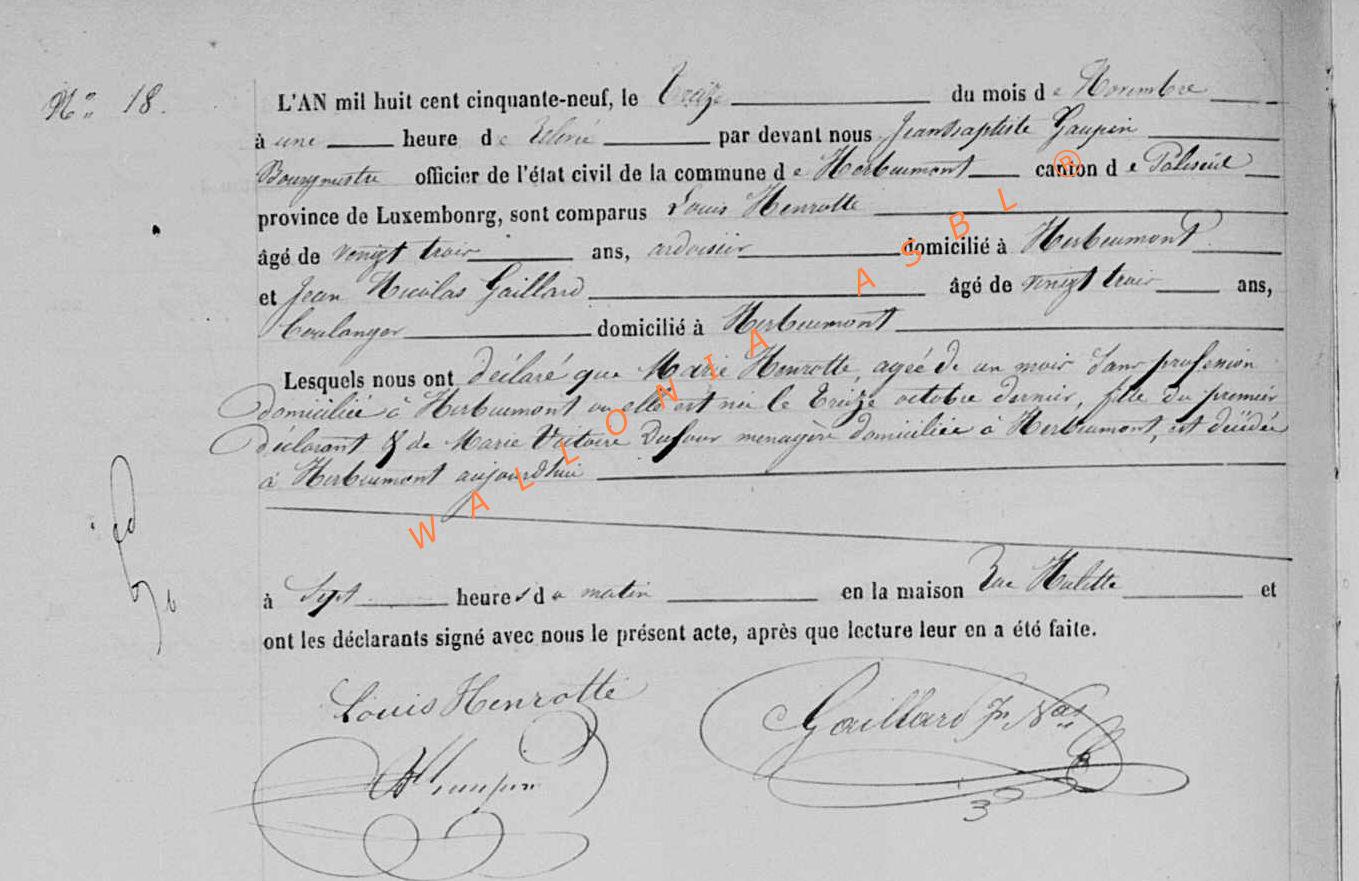 N° 18.
L'AN mil huit cent cinquante-neuf, le treize du mois de Novembre
à une heure de relevée par devant nous Jean Baptiste Gaupin
Bourgmestre officier de l'état civil de la commune de Herbeumont canton de Paliseul
province de Luxembourg, sont comparus Louis Henrotte
âgé de vingt trois ans, ardoisier domicilié à Herbeumont
et Jean Nicolas Gaillard âgé de vingt trois ans,
boulanger domicilié à Herbeumont
Lesquels nous ont déclaré que Marie Henrotte, agée de un mois sans profession
domiciliée à Herbeumont ou elle est née le treize octobre dernier, fille du premier
déclarant & de Marie Victoire Dufour menagère domiciliée à Herbeumont, est décédée
à Herbeumont aujourdhui
à sept heures du matin en la maison Rue Hulette et
ont les déclarants signé avec nous le présent acte, après que lecture leur en a été faite.
Louis Henrotte
Gaillard Jn Nas
Gaupin
WALLONIA ASBL ®